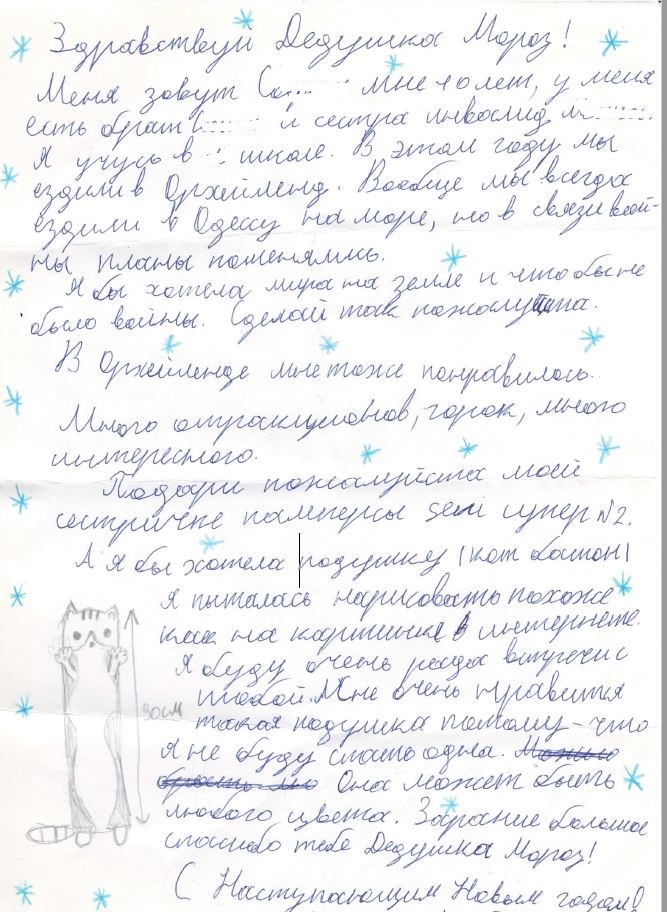 Здравствуй Дедушка Мороз!
Меня зовут Мне 10 лет, у меня
есть брат и сестра инвалид
Я учусь в школе. В этом году мы
ездили в Орхейленд. Вообще мы всегда
ездили в Одессу на море, но в связи вой-
ны планы поменялись.
Я бы хотела мира на земле и что бы не
было войны. Сделай так пожалуйста.
В Орхейленде мне тоже понравилось.
Много атракционов, горок, много
интересного.
Подари пожалуйста моей
сестричке памперсы seni супер №2.
А я бы хотела подушку (кот батон)
Я пыталась нарисовать похоже
как на картинке в интернете.
Я буду очень рада встречи с
тобой. Мне очень нравится
такая подушка потому-что
Я не буду спать одна.
Она может быть
90см
любого цвета. Зарание большое
спасибо тебе Дедушка Мороз!
С Наступающим Новым годом!